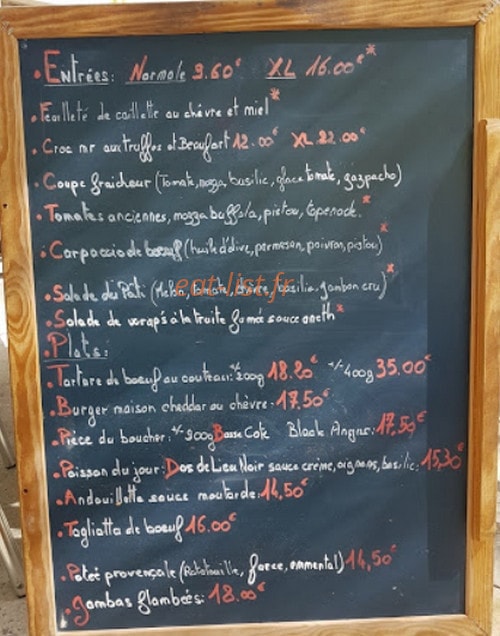 • Entrées: Normale 9.60€ XL 16.00€*
• Feuilleté de caillette au chèvre et miel*
• Croc mr aux truffes et Beaufort 12.00€ XL 22.00€
• Coupe fraicheur (Tomate, mozza, basilic, glace tomate, gazpacho)
• Tomates anciennes, mozza buffala, pistou, tapenade.*
• Carpaccio de boeuf (huile d'olive, parmesan, poivron, pistou)*
• Salade du Pati (Melon, tomate, chèvre, basilic, jambon cru)*
eat-list.fr
• Salade de wraps à la truite fumée sauce aneth*
• Plats:
• Tartare de boeuf au couteau: +/- 200g 18.20€ +/- 400g 35.00€
• Burger maison cheddar ou chèvre: 17.50€
• Pièce du boucher: +/- 300g Basse Cote Black Angus: 17,50€
• Poisson du jour: Dos de Lieu Noir sauce crème, oignons, basilic: 15,30€
• Andouillette sauce moutarde: 14,50€
• Tagliatta de boeuf 16.00€
• Poleé provençale (Ratatouille, farce, emmental) 14,50€
• Gambas flambées: 18.00€